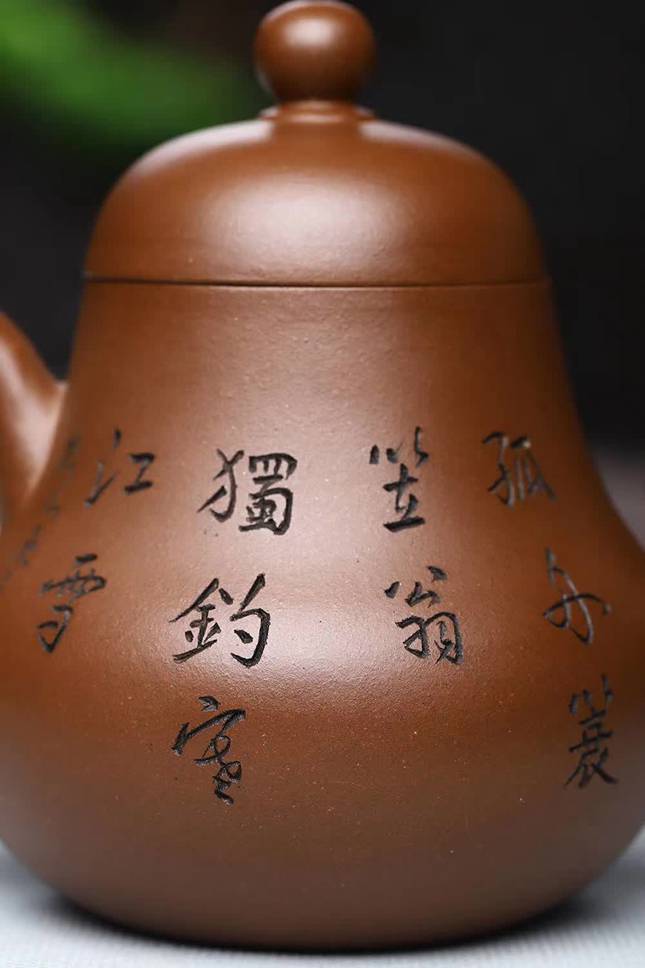 孤舟簑
笠翁
獨釣寒
江雪